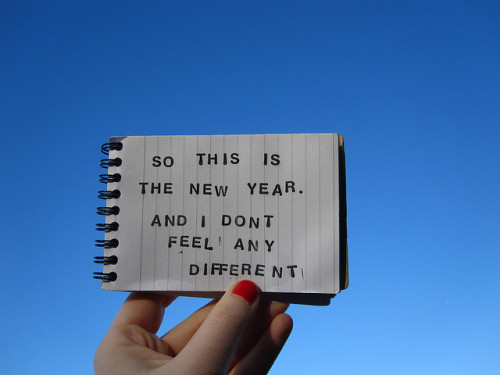 SO THIS IS
THE NEW YEAR.
AND I DONT
FEEL ANY
DIFFERENT